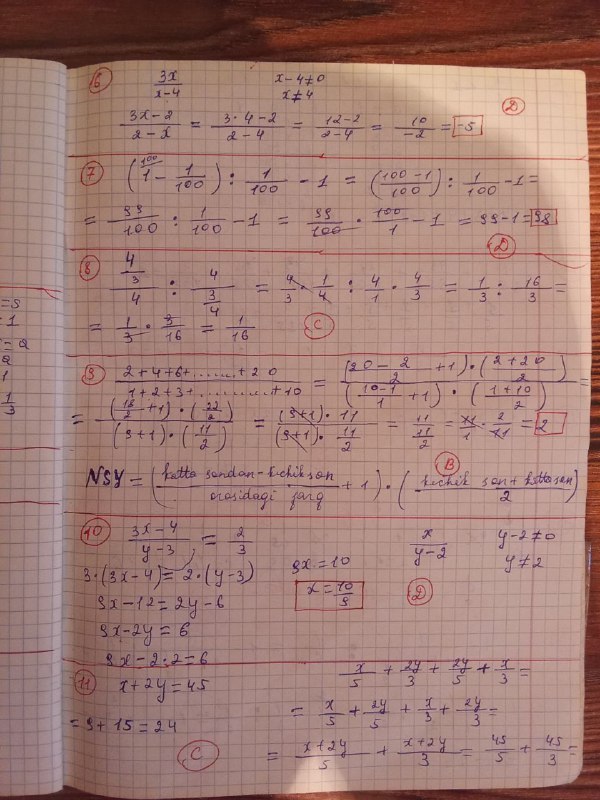 =9
=1
=2
2
1
1/3
6 3x/(x-4) x-4≠0
x≠4
(3x-2)/(2-x) = (3·4-2)/(2-4) = (12-2)/(2-4) = 10/(-2) = -5 D
7 (1^100 - 1/100) : 1/100 - 1 = ((100-1)/100) : 1/100 - 1 =
= 99/100 : 1/100 - 1 = 99/100 · 100/1 - 1 = 99-1 = 98
D
8 (4/3)/4 : 4/(3/4) = 4/3 · 1/4 : 4/1 · 4/3 = 1/3 : 16/3 =
= 1/3 · 3/16 = 1/16 C
9 (2+4+6+........+20)/(1+2+3+............+10) = ((20-2)/2 +1)·((2+20)/2) / ((10-1)/1 +1)·((1+10)/2) =
= ((18/2 +1)·(22/2))/((9+1)·(11/2)) = ((9+1)·11)/((9+1)·11/2) = 11/(11/2) = 11/1 · 2/11 = 2
B
NSY = ((katta sondan-kichik son)/(orasidagi farq) + 1)·((kichik son + katta son)/2)
10 (3x-4)/(y-3) = 2/3 x/(y-2) y-2≠0
3·(3x-4) = 2·(y-3) 9x=10 y≠2
9x-12=2y-6 x=10/9 D
9x-2y=6
9x-2·2=6
11 x+2y=45 x/5 + 2y/3 + 2y/5 + x/3 =
= x/5 + 2y/5 + x/3 + 2y/3 =
=9+15=24
C = (x+2y)/5 + (x+2y)/3 = 45/5 + 45/3 =